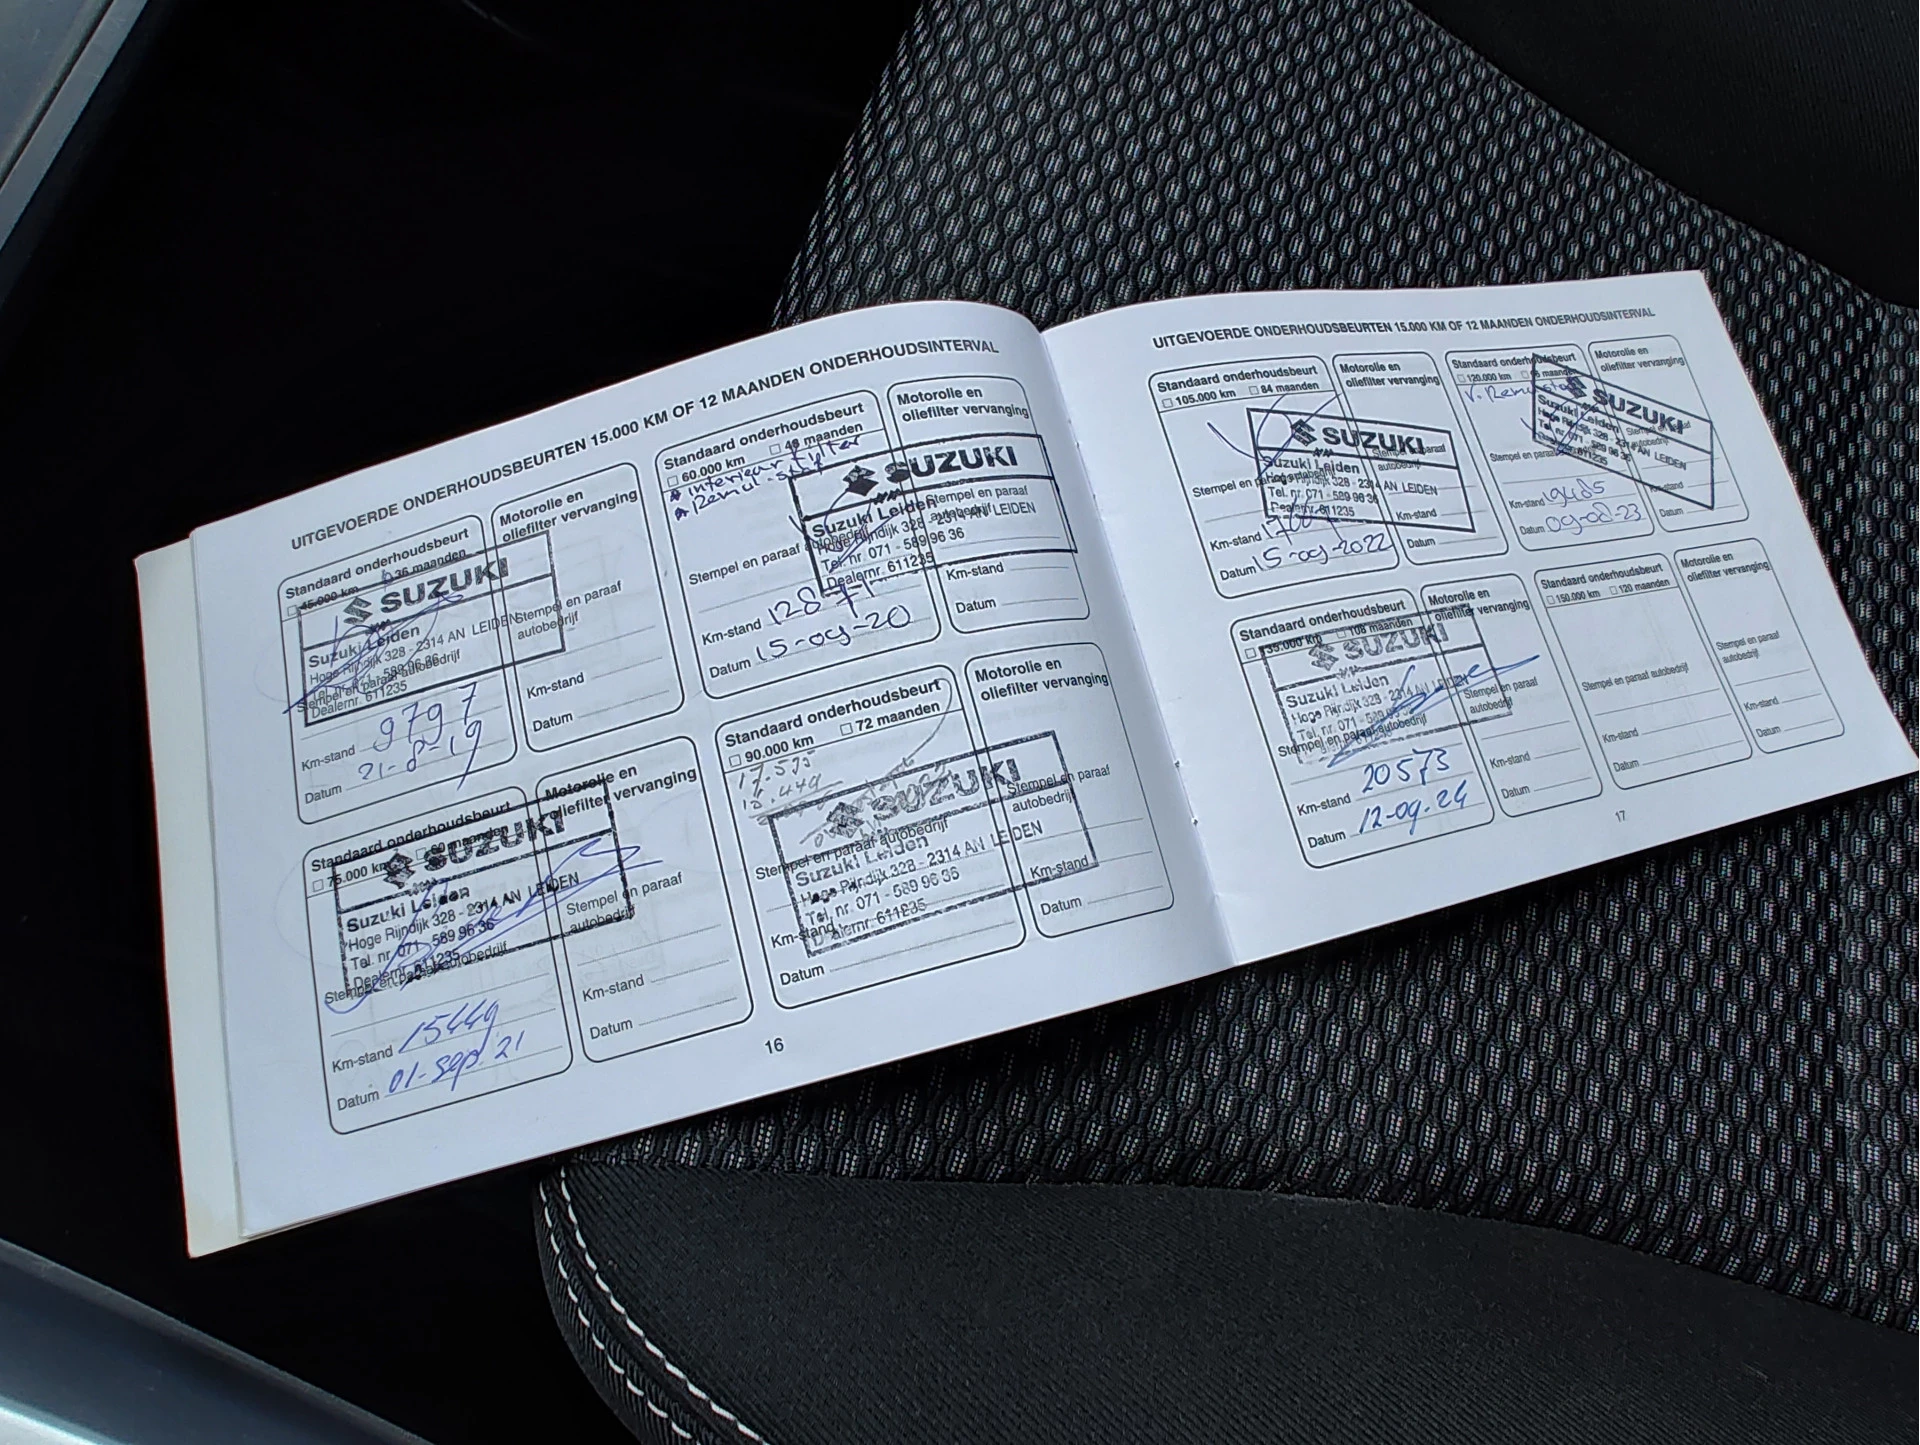 UITGEVOERDE ONDERHOUDSBEURTEN 15.000 KM OF 12 MAANDEN ONDERHOUDSINTERVAL
Standaard onderhoudsbeurt
45.000 km 36 maanden
SUZUKI
Suzuki Leiden
Hoge Rijndijk 328 - 2314 AN LEIDEN
Tel. nr. 071 - 589 96 36
Stempel en paraaf autobedrijf
Dealernr. 611235
Km-stand 9797
Datum 21-8-19
Motorolie en
oliefilter vervanging
Stempel en paraaf
autobedrijf
Km-stand
Datum
Standaard onderhoudsbeurt
60.000 km 48 maanden
interieur filter
SUZUKI
Suzuki Leiden
Hoge Rijndijk 328 - 2314 AN LEIDEN
Stempel en paraaf autobedrijf
Tel. nr. 071 - 589 96 36
Dealernr. 611235
Km-stand
Datum 15-09-20
Motorolie en
oliefilter vervanging
Stempel en paraaf
autobedrijf
Km-stand
Datum
Standaard onderhoudsbeurt
75.000 km 60 maanden
SUZUKI
Suzuki Leiden
Hoge Rijndijk 328 - 2314 AN LEIDEN
Tel. nr. 071 - 589 96 36
Dealernr. 611235
Stempel en paraaf autobedrijf
Km-stand 15449
Datum 01-sep. 21
Motorolie en
oliefilter vervanging
Stempel en paraaf
autobedrijf
Km-stand
Datum
Standaard onderhoudsbeurt
90.000 km 72 maanden
17.575
15.449
SUZUKI
Stempel en paraaf autobedrijf
Suzuki Leiden
Hoge Rijndijk 328 - 2314 AN LEIDEN
Tel. nr. 071 - 589 96 36
Dealernr. 611235
Km-stand
Datum
Motorolie en
oliefilter vervanging
Stempel en paraaf
autobedrijf
Km-stand
Datum
16
UITGEVOERDE ONDERHOUDSBEURTEN 15.000 KM OF 12 MAANDEN ONDERHOUDSINTERVAL
Standaard onderhoudsbeurt
105.000 km 84 maanden
SUZUKI
Suzuki Leiden
Stempel en paraaf autobedrijf
Hoge Rijndijk 328 - 2314 AN LEIDEN
Tel. nr. 071 - 589 96 36
Dealernr. 611235
Km-stand
Datum 15-09-2022
Motorolie en
oliefilter vervanging
Stempel en paraaf
autobedrijf
Km-stand
Datum
Standaard onderhoudsbeurt
120.000 km 96 maanden
SUZUKI
Suzuki Leiden
Hoge Rijndijk 328 - 2314 AN LEIDEN
Tel. nr. 071 - 589 96 36
Dealernr. 611235
Stempel en paraaf autobedrijf
Km-stand 19485
Datum 09-08-23
Motorolie en
oliefilter vervanging
Stempel en paraaf
autobedrijf
Km-stand
Datum
Standaard onderhoudsbeurt
135.000 km 108 maanden
SUZUKI
Suzuki Leiden
Hoge Rijndijk 328 - 2314 AN LEIDEN
Tel. nr. 071 - 589 96 36
Stempel en paraaf autobedrijf
Km-stand 20573
Datum 12-09-24
Motorolie en
oliefilter vervanging
Stempel en paraaf
autobedrijf
Km-stand
Datum
Standaard onderhoudsbeurt
150.000 km 120 maanden
Stempel en paraaf autobedrijf
Km-stand
Datum
Motorolie en
oliefilter vervanging
Stempel en paraaf
autobedrijf
Km-stand
Datum
17